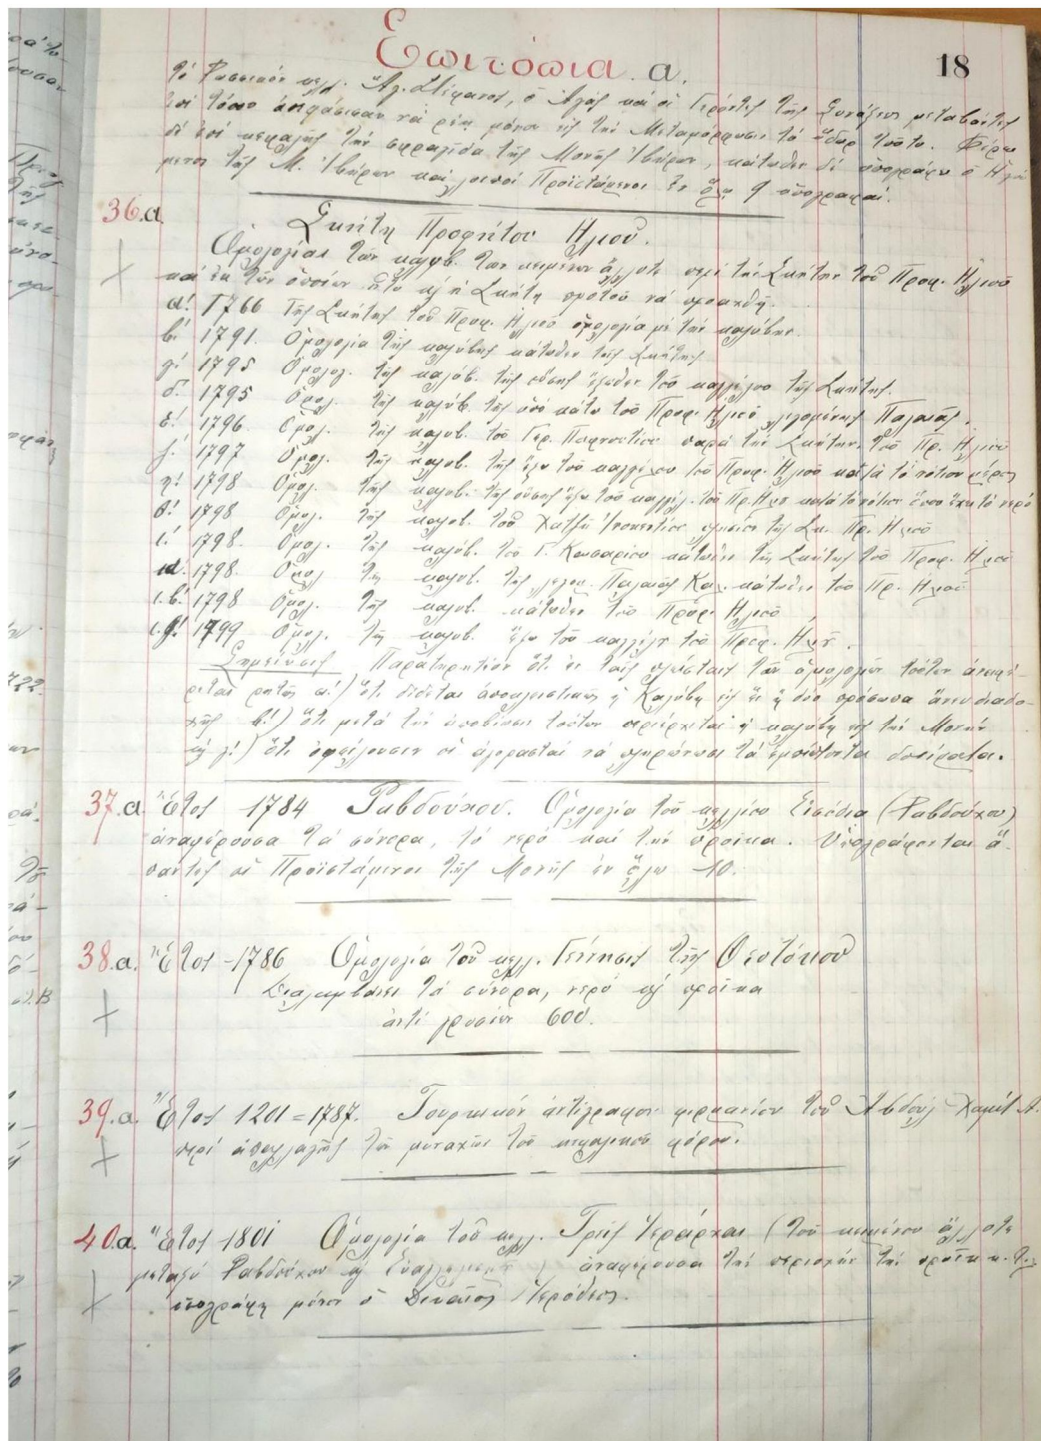 Επιτόπια. α.
18
τό Ρωσσικόν κελλ. Ἁγ. Στέφανος, ὁ Ἀγᾶς καί οἱ Γέροντες τῆς Συνάξεως μεταβάντες
ἐπί τόπου ἀπεφάσισαν νά ρέῃ μόνον εἰς τήν Μεταμόρφωσιν τό ὕδωρ τοῦτο. Φέρει
δέ ἐπί κεφαλῆς τήν σφραγῖδα τῆς Μονῆς Ἰβήρων, κάτωθεν δέ ὑπογράφει ὁ
μενος τῆς Μ. Ἰβήρων καί λοιποί Προϊστάμενοι ἐν ὅλῳ 9 ὑπογραφαί.
36.α Σκήτη Προφήτου Ηλιοῦ.
Ὁμολογίαι τῶν καλυβ. τῶν κειμένων ἄλλοτε περί τήν Σκήτην τοῦ Προφ. Ηλιοῦ
καί ἐκ τῶν ὁποίων ἦτο κ ἡ Σκήτη προτοῦ νά προαχθῇ.
α! 1766 Τῆς Σκήτης τοῦ Προφ. Ηλιοῦ ὁμολογία μέ τήν καλύβην.
β! 1791. Ὁμολογία τῆς καλύβης κάτωθεν τῆς Σκήτης
γ! 1795 Ὁμολογ. τῆς καλύβ. τῆς οὔσης ἔξωθεν τοῦ καγγέλου τῆς Σκήτης.
δ! 1795 Ὁμολ. τῆς καλύβ. τῆς ὑπό κάτω τοῦ Προφ. Ηλιοῦ λεγομένης Παναγιᾶς.
ε! 1796. Ὁμολ. τῆς καλυβ. τοῦ Γερ. Παφνουτίου παρά τήν Σκήτην τοῦ Πρ. Ηλιοῦ
1797 Ὁμολ. τῆς καλυβ. τῆς ἔξω τοῦ καγγέλου τοῦ Προφ. Ηλιοῦ κατά τό νότιον μέρος
η! 1798 Ὁμολ. τῆς καλυβ. τῆς οὔσης ἔξω τοῦ καγγέλ. τοῦ Πρ. Ηλιοῦ κατά τό νότιον ὅπου ἔχει τό νερό
θ! 1798 Ὁμολ. τῆς καλυβ. τοῦ Χατζῆ Ἰννοκεντίου πλησίον τῆς Σκ. Πρ. Ηλιοῦ
ι! 1798. Ὁμολ. τῆς καλύβ. τοῦ Γ. κάτωθεν τῆς Σκήτης τοῦ Προφ. Ηλιοῦ
ια. 1798. Ὁμολ τῆς καλυβ. τῆς λεγομ. κάτωθεν τοῦ Πρ. Ηλιοῦ
ι.β! 1798 Ὁμολ. τῆς καλυβ. κάτωθεν τοῦ Προφ. Ηλιοῦ
ι.γ! 1799 Ὁμολ. τῆς καλυβ. ἔξω τοῦ καγγέλου τοῦ Προφ. Ηλιοῦ.
Σημείωσις Παρατηρητέον ὅτι ἐν ταῖς πλείσταις τῶν ὁμολογιῶν τούτων ἀναφέ-
ρεται ρητῶς α!) ὅτι δίδεται ἀποκλειστικῶς ἡ Καλύβη εἰς ἕν ἤ δύο πρόσωπα ἄνευ διαδο-
χῆς β!) ὅτι μετά τήν ἀποβίωσιν τούτων περιέρχεται ἡ καλύβη εἰς τήν Μονήν
κ γ!) ὅτι ὀφείλουσιν οἱ ἀγορασταί νά πληρώνωσι τά δοσίματα.
37.α Ἔτος 1784 Ραβδούχου. Ὁμολογία τοῦ κελλίου Εἰσόδια (Ραβδούχου)
ἀναφέρουσα τά σύνορα, τό νερό καί τήν προῖκα. Ὑπογράφονται ἅ-
παντες οἱ Προϊστάμενοι τῆς Μονῆς ἐν ὅλῳ 10.
38.α. Ἔτος -1786 Ὁμολογία τοῦ κελλ. Γέννησις τῆς Θεοτόκου
Διαλαμβάνει τά σύνορα, νερό κ προῖκα
ἀντί γροσίων 600.
39.α. Ἔτος 1201 = 1787. Τουρκικόν ἀντίγραφον φιρμανίου τοῦ Ἀβδούλ Χαμίτ Α.
περί ἀπαλλαγῆς τῶν μοναχῶν τοῦ κεφαλικοῦ φόρου.
40.α. Ἔτος 1801 Ὁμολογία τοῦ κελλ. Τρεῖς Ἱεράρχαι (τοῦ κειμένου ἄλλοτε
μεταξύ Ραβδούχου κ ) ἀναφέρουσα τήν περιοχήν τήν προῖκα κ.
ὑπογράφει μόνον ὁ Ἱερόθεος.